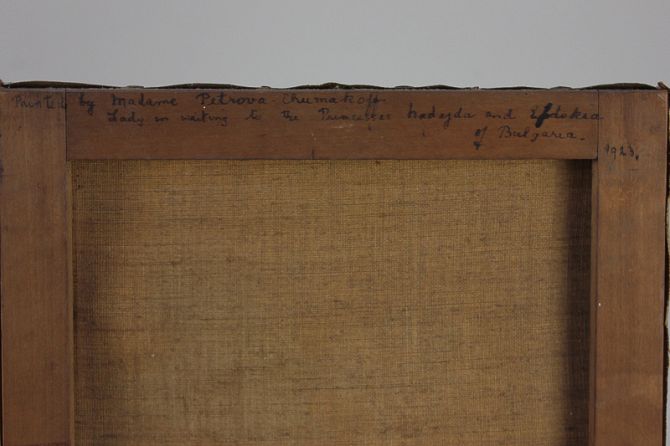 Painted by Madame Petrova-Chumakoff
Lady in waiting to the Princesses Nadejda and Eudokia
of Bulgaria.
1923.